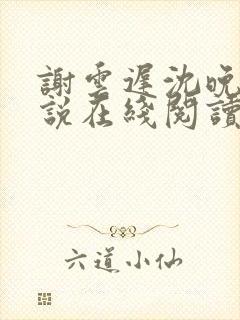 謝雲遲沈晚
說在綫閱讀
六道小仙